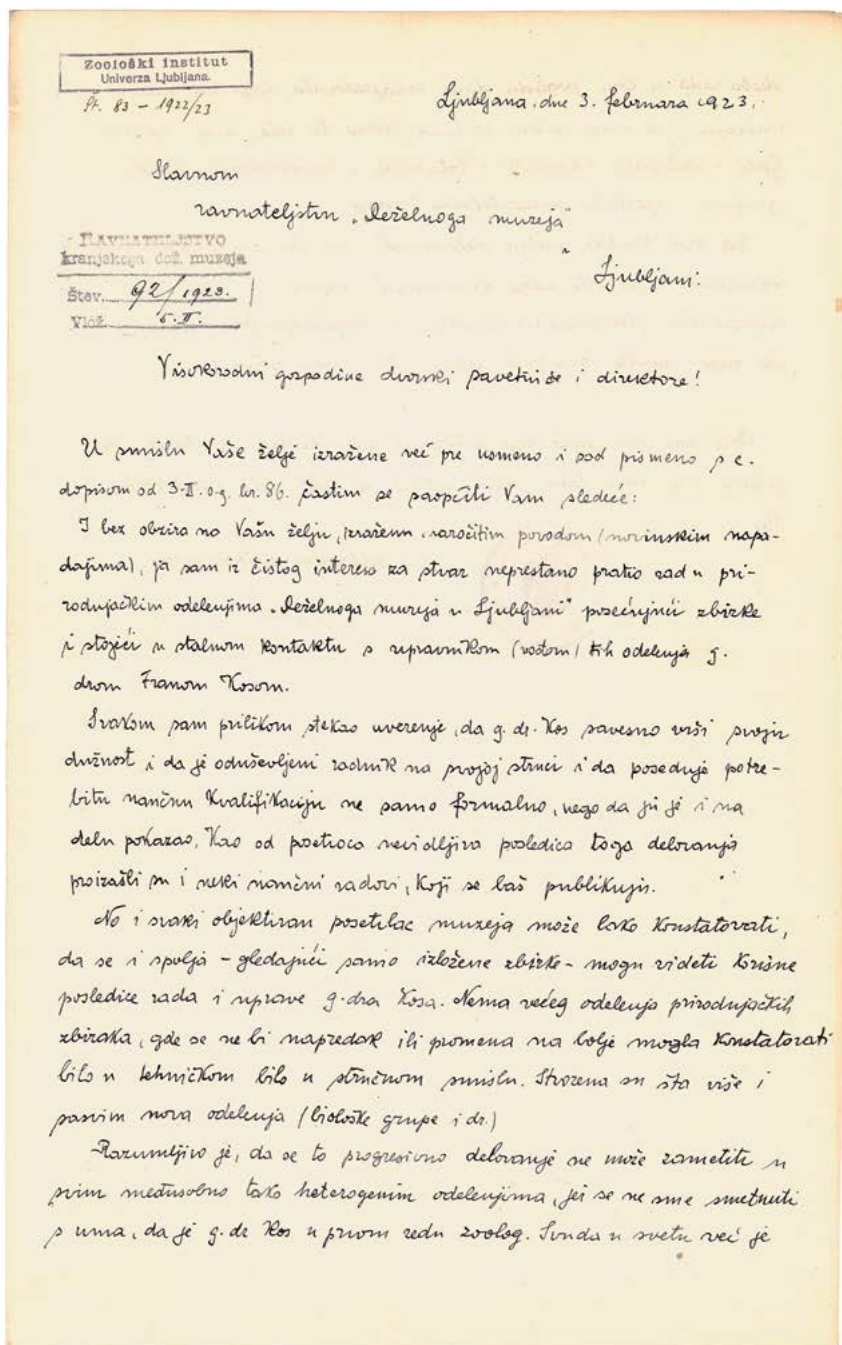 Zoološki institut
Univerza Ljubljana.
Št. 83 – 1922/23
Ljubljana, dne 3. februara 1923.
Slavnom
ravnateljstvu „Deželnoga muzeja"
u
Ljubljani.
RAVNATELJSTVO
kranjskega dež. muzeja
Štev. 92/1923.
Vlož. 5.II.
Visokorodni gospodine dvorski savetniče i direktore!
U smislu Vaše želje izražene već pre usmeno i sad pismeno s c.
dopisom od 3-II. o.g. br. 86. častim se saopćiti Vam sledeće:
I bez obzira na Vašu želju, izraženu naročitim povodom (novinskim napa-
dajima), ja sam iz čistog interesa za stvar neprestano pratio rad u pri-
rodnjačkim odelenjima „Deželnoga muzeja u Ljubljani" posećujući zbirke
i stojeći u stalnom kontaktu s upravnikom (vođom) tih odelenja g.
drom Franom Kosom.
Svakom sam prilikom stekao uverenje, da g. dr. Kos savesno vrši svoju
dužnost i da je oduševljeni radnik na svojoj struci i da poseduje potre-
bitu naučnu kvalifikaciju ne samo formalno, nego da ju je i na
delu pokazao. Kao od posetioca nevidljiva posledica toga delovanja
proizašli su i neki naučni radovi, koji se baš publikuju.
No i svaki objektivan posetilac muzeja može lako konstatovati,
da se i spolja – gledajući samo izložene zbirke – mogu videti korisne
posledice rada i uprave g. dra Kosa. Nema većeg odelenja prirodnjačkih
zbiraka, gde se ne bi napredak ili promena na bolje mogla konstatovati
bilo u tehničkom bilo u stručnom smislu. Stvorena su šta više i
sasvim nova odelenja (biološke grupe i dr.)
Razumljivo je, da se to progresivno delovanje ne može zametiti u
svim međusobno tako heterogenim odelenjima, jer se ne sme smetnuti
s uma, da je g. dr Kos u prvom redu zoolog. Svuda u svetu već je